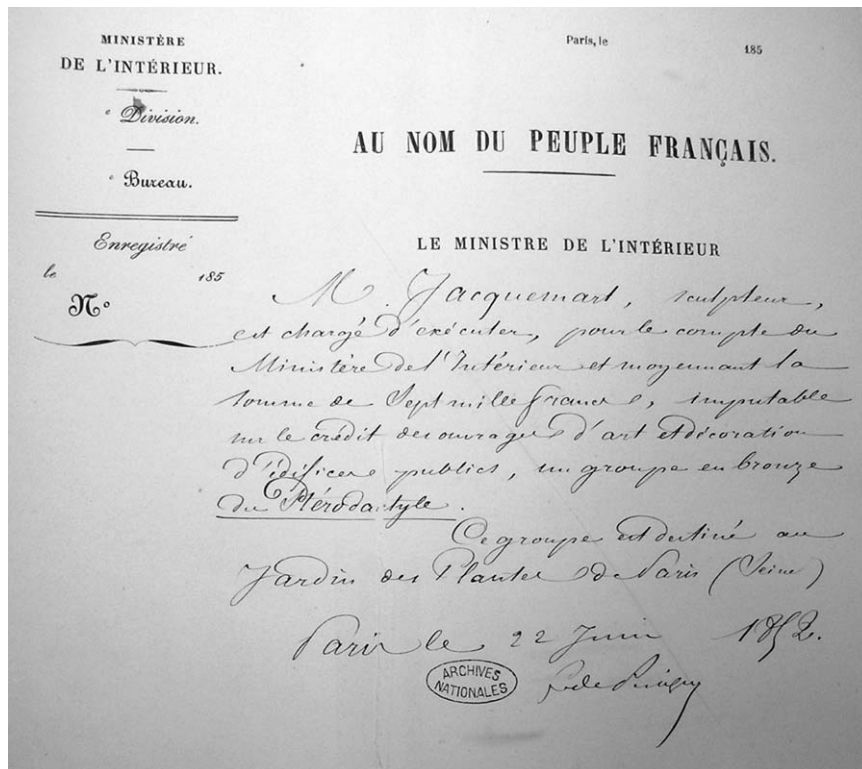 MINISTÈRE
DE L'INTÉRIEUR.
e Division.
e Bureau.
Enregistré
le 185
N°
Paris, le 185
AU NOM DU PEUPLE FRANÇAIS.
LE MINISTRE DE L'INTÉRIEUR
M. Jacquemart, sculpteur,
est chargé d'exécuter, pour le compte du
Ministère de l'Intérieur et moyennant la
somme de Sept mille francs, imputable
sur le crédit des ouvrages d'art et décoration
d'édifices publics, un groupe en bronze
du Ptérodactyle.
Ce groupe est destiné au
Jardin des Plantes de Paris (Seine)
Paris le 22 Juin 1852.
ARCHIVES
NATIONALES